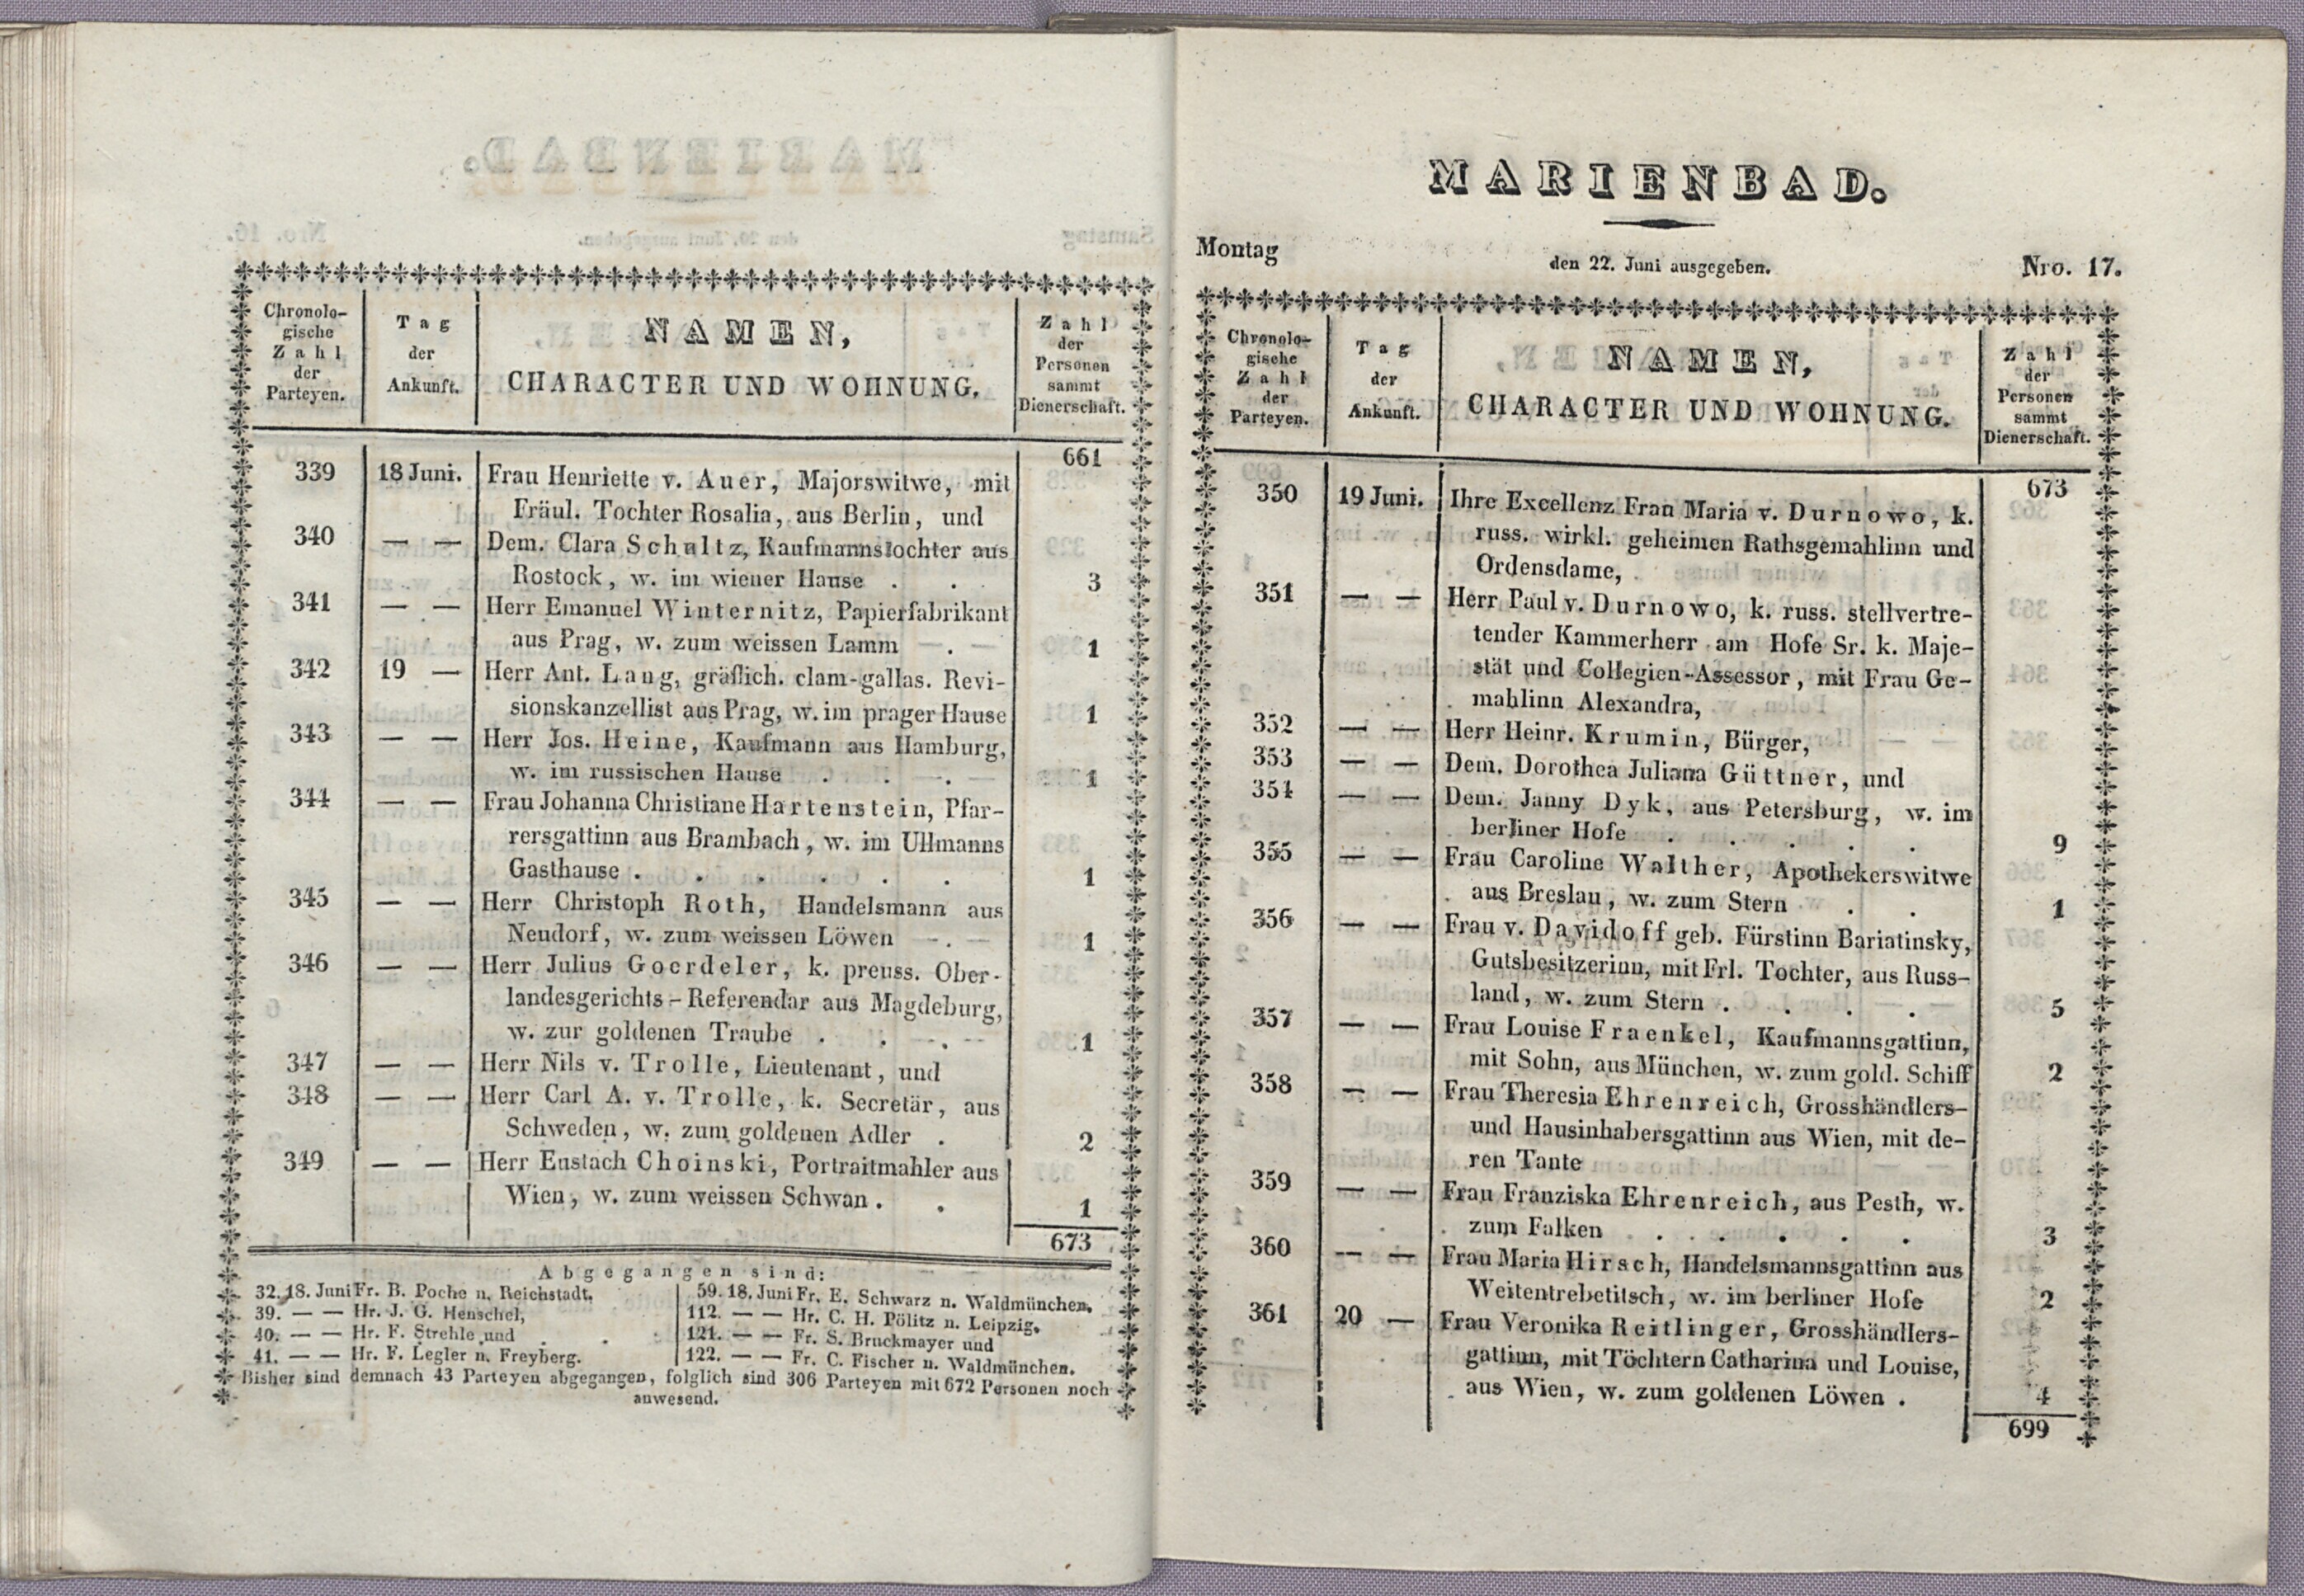 Chronolo-
gische
Zahl
der
Parteyen.
Tag
der
Ankunft.
NAMEN,
CHARACTER UND WOHNUNG.
Zahl
der
Personen
sammt
Dienerschaft.
661
339 18 Juni. Frau Henriette v. Auer, Majorswitwe, mit
Fräul. Tochter Rosalia, aus Berlin, und
340 — — Dem. Clara Schultz, Kaufmannstochter aus
Rostock, w. im wiener Hause . . 3
341 — — Herr Emanuel Winternitz, Papierfabrikant
aus Prag, w. zum weissen Lamm . 1
342 19 — Herr Ant. Lang, gräflich. clam-gallas. Revi-
sionskanzellist aus Prag, w. im prager Hause 1
343 — — Herr Jos. Heine, Kaufmann aus Hamburg,
w. im russischen Hause . . . 1
344 — — Frau Johanna Christiane Hartenstein, Pfar-
rersgattinn aus Brambach, w. im Ullmanns
Gasthause . . . . . . 1
345 — — Herr Christoph Roth, Handelsmann aus
Neudorf, w. zum weissen Löwen . 1
346 — — Herr Julius Goerdeler, k. preuss. Ober-
landesgerichts-Referendar aus Magdeburg,
w. zur goldenen Traube . . . 1
347 — — Herr Nils v. Trolle, Lieutenant, und
348 — — Herr Carl A. v. Trolle, k. Secretär, aus
Schweden, w. zum goldenen Adler . 2
349 — — Herr Eustach Choinski, Portraitmahler aus
Wien, w. zum weissen Schwan . . 1
673
Abgegangen sind:
32. 18. Juni Fr. B. Poche n. Reichstadt.
39. — — Hr. J. G. Henschel,
40. — — Hr. F. Strehle und
41. — — Hr. F. Legler n. Freyberg.
59. 18. Juni Fr. E. Schwarz n. Waldmünchen.
112. — — Hr. C. H. Pölitz n. Leipzig.
121. — — Fr. S. Bruckmayer und
122. — — Fr. C. Fischer n. Waldmünchen.
Bisher sind demnach 43 Parteyen abgegangen, folglich sind 306 Parteyen mit 672 Personen noch
anwesend.
MARIENBAD.
Montag den 22. Juni ausgegeben. Nro. 17.
Chronolo-
gische
Zahl
der
Parteyen.
Tag
der
Ankunft.
NAMEN,
CHARACTER UND WOHNUNG.
Zahl
der
Personen
sammt
Dienerschaft.
673
350 19 Juni. Ihre Excellenz Frau Maria v. Durnowo, k.
russ. wirkl. geheimen Rathsgemahlinn und
Ordensdame,
351 — — Herr Paul v. Durnowo, k. russ. stellvertre-
tender Kammerherr am Hofe Sr. k. Maje-
stät und Collegien-Assessor, mit Frau Ge-
mahlinn Alexandra,
352 — — Herr Heinr. Krumin, Bürger,
353 — — Dem. Dorothea Juliana Güttner, und
354 — — Dem. Janny Dyk, aus Petersburg, w. im
berliner Hofe . . . . . 9
355 — — Frau Caroline Walther, Apothekerswitwe
aus Breslau, w. zum Stern . . 1
356 — — Frau v. Davidoff geb. Fürstinn Bariatinsky,
Gutsbesitzerinn, mit Frl. Tochter, aus Russ-
land, w. zum Stern . . . . 5
357 — — Frau Louise Fraenkel, Kaufmannsgattinn,
mit Sohn, aus München, w. zum gold. Schiff 2
358 — — Frau Theresia Ehrenreich, Grosshändlers-
und Hausinhabersgattinn aus Wien, mit de-
ren Tante
359 — — Frau Franziska Ehrenreich, aus Pesth, w.
zum Falken . . . . . 3
360 — — Frau Maria Hirsch, Handelsmannsgattinn aus
Weitentrebetitsch, w. im berliner Hofe 2
361 20 — Frau Veronika Reitlinger, Grosshändlers-
gattinn, mit Töchtern Catharina und Louise,
aus Wien, w. zum goldenen Löwen . 4
699